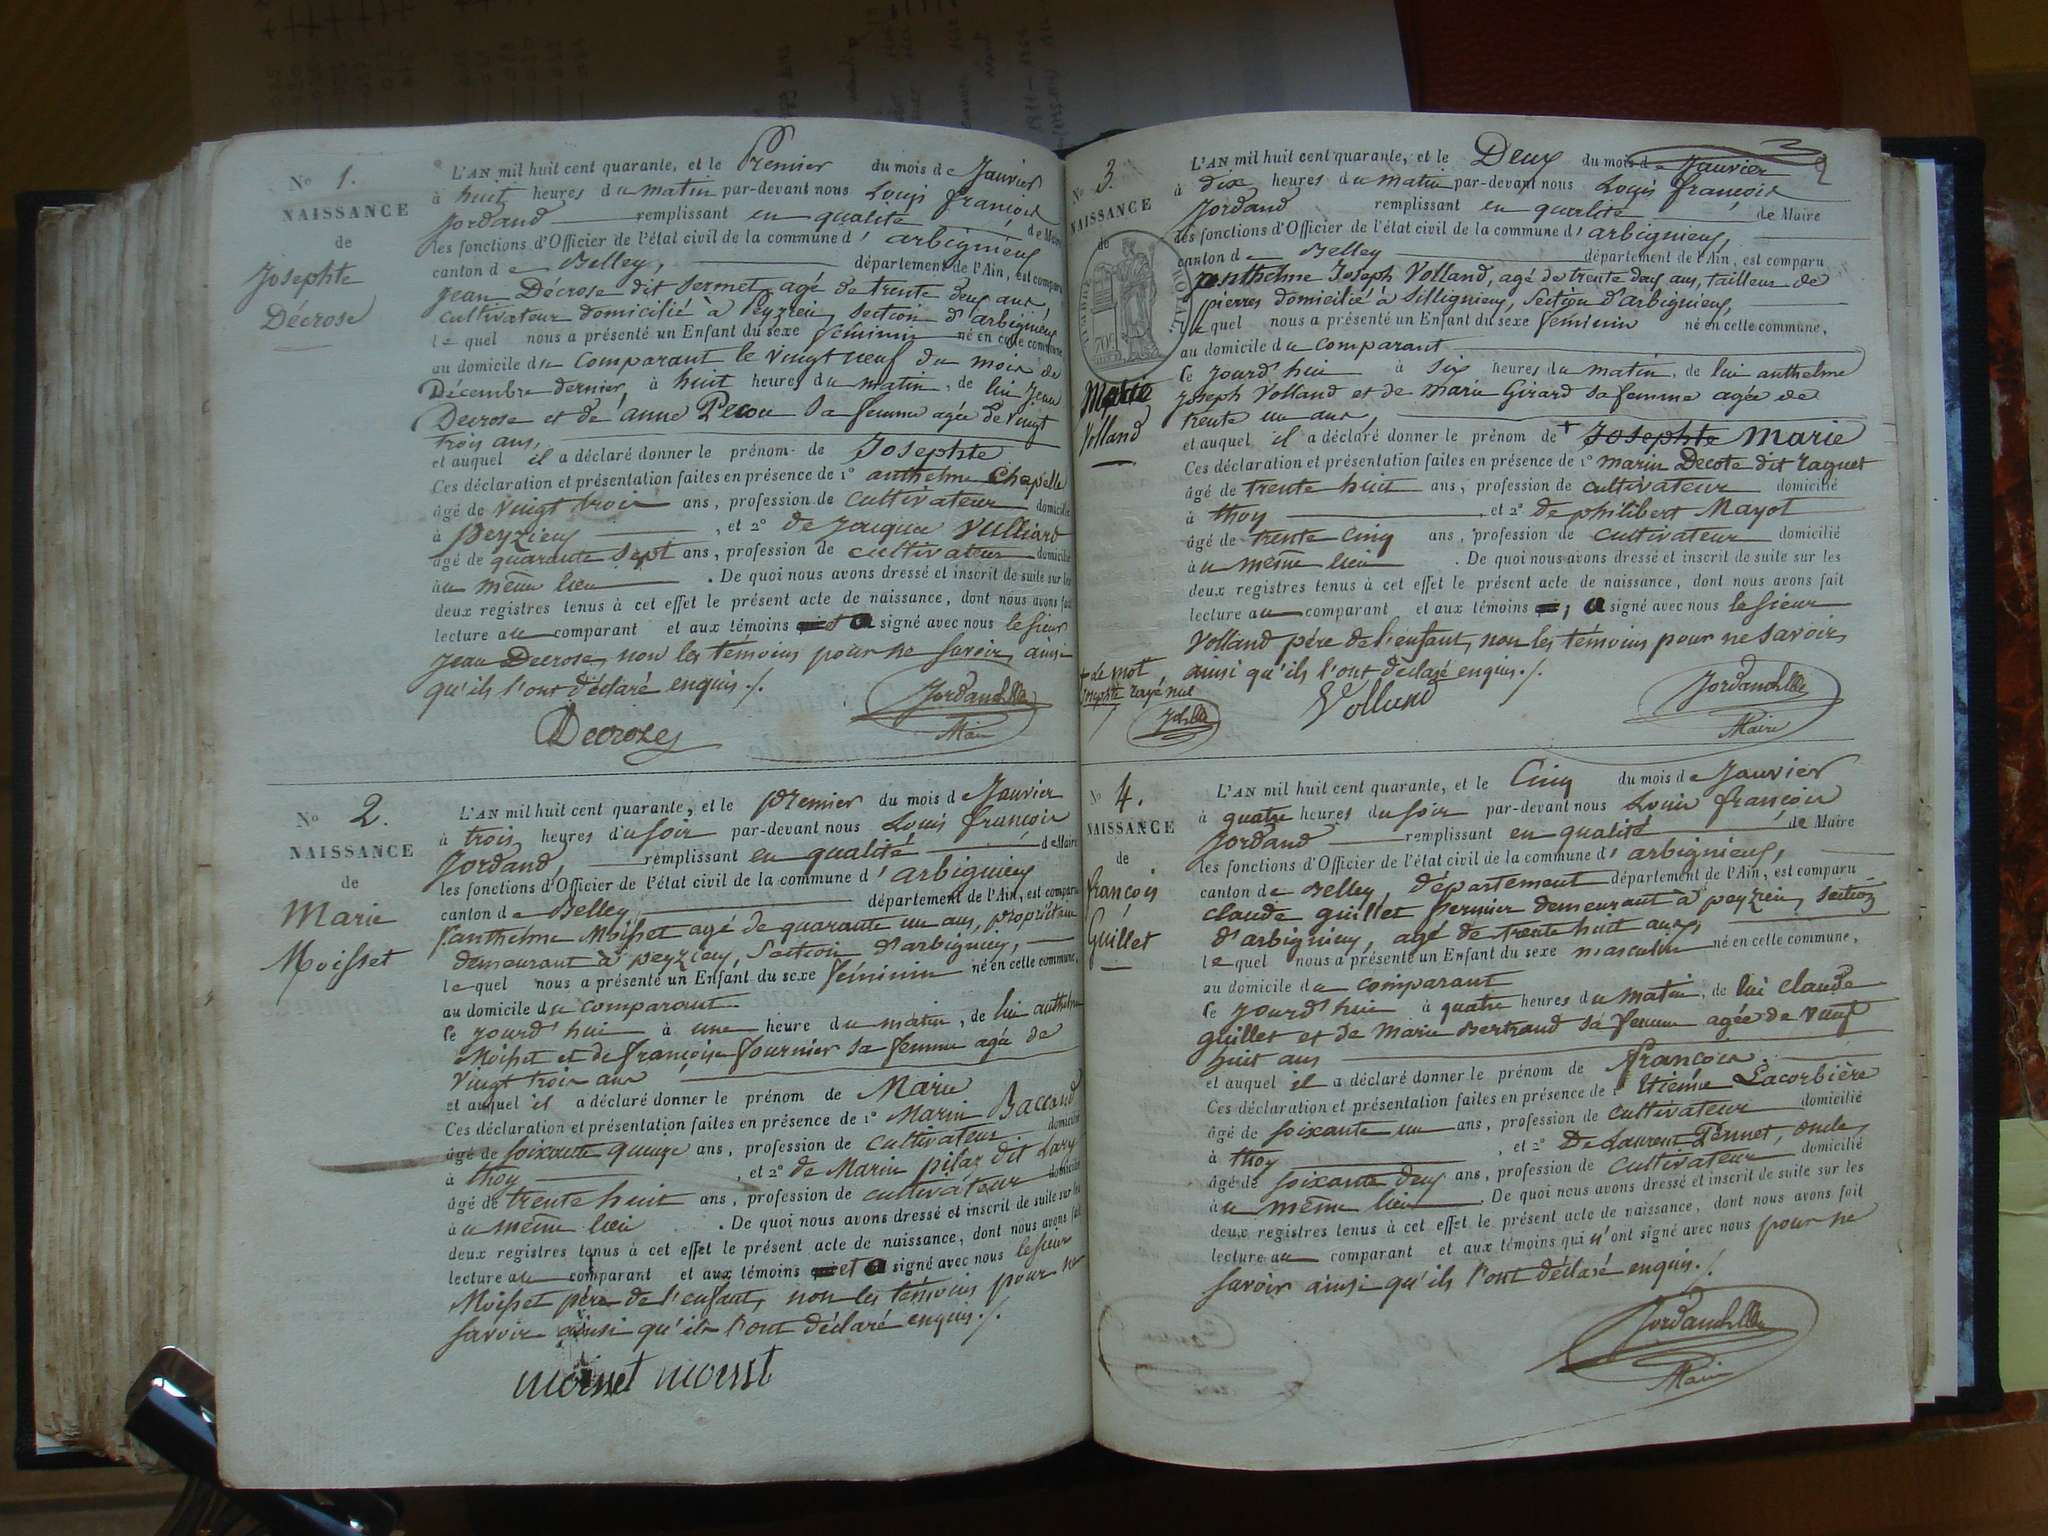 No 1.
NAISSANCE
de
Josephte
Décrose
L'AN mil huit cent quarante, et le Premier du mois de Janvier
à huit heures du matin par-devant nous Louis françois
Jordand remplissant en qualité de Maire
les fonctions d'Officier de l'état civil de la commune d' arbignieux
canton de Belley, département de l'Ain, est comparu
Jean Décrose dit Sermet, agé de trente deux ans,
cultivateur domicilié à Peyzieu, section d'arbignieux
le quel nous a présenté un Enfant du sexe féminin né en cette commune,
au domicile du comparant le vingt neuf du mois de
Décembre dernier, à huit heures du matin, de lui Jean
Decrose et de anne Pecou sa femme agée de vingt
trois ans,
et auquel il a déclaré donner le prénom de Josephte
Ces déclaration et présentation faites en présence de 1° anthelme Chapelle
âgé de vingt trois ans, profession de cultivateur domicilié
à Peyzieux , et 2° de Jacques Vulliard
âgé de quarante sept ans, profession de cultivateur domicilié
au même lieu . De quoi nous avons dressé et inscrit de suite sur les
deux registres tenus à cet effet le présent acte de naissance, dont nous avons fait
lecture au comparant et aux témoins et a signé avec nous le sieur
Jean Decrose, non les témoins pour ne savoir, ainsi
qu'ils l'ont déclaré enquis ./.
Decroze
Maire
No 2.
NAISSANCE
de
Marie
Moisset
L'AN mil huit cent quarante, et le premier du mois de Janvier
à trois heures du soir par-devant nous Louis françois
Jordand, remplissant en qualité de Maire
les fonctions d'Officier de l'état civil de la commune d' arbignieux
canton de Belley, département de l'Ain, est comparu
anthelme Moisset agé de quarante un ans, propriétaire
demeurant à peyzieux, section d'arbignieu,
le quel nous a présenté un Enfant du sexe féminin né en cette commune,
au domicile du comparant
ce jourd'hui à une heure du matin, de lui anthelme
Moisset et de françoise fournier sa femme agée de
vingt trois ans
et auquel il a déclaré donner le prénom de Marie
Ces déclaration et présentation faites en présence de 1° Marin Baccand
âgé de soixante quinze ans, profession de cultivateur domicilié
à thoy , et 2° de Marin pilaz dit Lary
âgé de trente huit ans, profession de cultivateur domicilié
au même lieu . De quoi nous avons dressé et inscrit de suite sur les
deux registres tenus à cet effet le présent acte de naissance, dont nous avons fait
lecture au comparant et aux témoins et a signé avec nous le sieur
Moisset père de l'enfant, non les témoins pour ne
savoir ainsi qu'ils l'ont déclaré enquis ./.
moisset
2
No 3.
NAISSANCE
de
TIMBRE ROYAL
Marie
Volland
L'AN mil huit cent quarante, et le Deux du mois de Janvier
à dix heures du matin par-devant nous Louis françois
Jordand remplissant en qualité de Maire
les fonctions d'Officier de l'état civil de la commune d' arbignieux,
canton de Belley département de l'Ain, est comparu
anthelme Joseph Volland, agé de trente deux ans, tailleur de
pierres domicilié à Sillignieu, section d'arbignieux,
le quel nous a présenté un Enfant du sexe féminin né en cette commune,
au domicile du comparant
ce jourd'hui à six heures du matin, de lui anthelme
Joseph Volland et de marie Girard sa femme agée de
trente un ans,
et auquel il a déclaré donner le prénom de + Josephte Marie
Ces déclaration et présentation faites en présence de 1° marin Decote dit raquet
âgé de trente huit ans, profession de cultivateur domicilié
à thoy , et 2° de philibert Mayot
âgé de trente cinq ans, profession de cultivateur domicilié
au même lieu . De quoi nous avons dressé et inscrit de suite sur les
deux registres tenus à cet effet le présent acte de naissance, dont nous avons fait
lecture au comparant et aux témoins , a signé avec nous le sieur
Volland père de l'enfant, non les témoins pour ne savoir,
ainsi qu'ils l'ont déclaré enquis ./.
+ le mot
rayé nul
Volland
Maire
No 4.
NAISSANCE
de
françois
Guillet
L'AN mil huit cent quarante, et le Cinq du mois de Janvier
à quatre heures du soir par-devant nous Louis françois
Jordand remplissant en qualité de Maire
les fonctions d'Officier de l'état civil de la commune d' arbignieux,
canton de Belley, département département de l'Ain, est comparu
claude guillet fermier demeurant à peyzieu, section
d'arbignieu, agé de trente huit ans,
le quel nous a présenté un Enfant du sexe masculin né en cette commune,
au domicile du comparant
ce jourd'hui à quatre heures du matin, de lui claude
guillet et de Marie Bertrand sa femme agée de vingt
huit ans
et auquel il a déclaré donner le prénom de françois
Ces déclaration et présentation faites en présence de 1° Etienne Lacorbière
âgé de soixante un ans, profession de cultivateur domicilié
à thoy , et 2° De Laurent Pennet, oncle
âgé de soixante deux ans, profession de cultivateur domicilié
au même lieu . De quoi nous avons dressé et inscrit de suite sur les
deux registres tenus à cet effet le présent acte de naissance, dont nous avons fait
lecture au comparant et aux témoins qui n'ont signé avec nous pour ne
savoir ainsi qu'ils l'ont déclaré enquis ./.
Maire